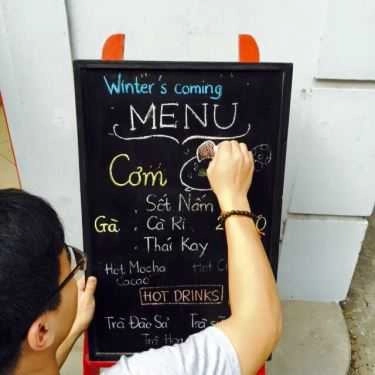 Winter's coming
MENU
Cơm
. Sốt Nấm
Gà . Cà Ri
. Thái Kay
Hot Mocha Hot
Cacao
HOT DRINKS
Trà Đào Sả Trà
Trà